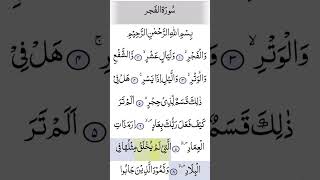 سُورَةُ الفَجر
بِسْمِ اللهِ الرَّحْمٰنِ الرَّحِيْمِ
وَالْفَجْرِ ۙ ١ وَلَيَالٍ عَشْرٍ ۙ ٢ وَّالشَّفْعِ
وَالْوَتْرِ ۙ ٣ وَالَّيْلِ اِذَا يَسْرِ ۚ ٤ هَلْ فِيْ
ذٰلِكَ قَسَمٌ لِّذِيْ حِجْرٍ ؕ ٥ اَلَمْ تَرَ
كَيْفَ فَعَلَ رَبُّكَ بِعَادٍ ۙ ٦ اِرَمَ ذَاتِ
الْعِمَادِ ۙ ٧ الَّتِيْ لَمْ يُخْلَقْ مِثْلُهَا فِي
الْبِلَادِ ۙ ٨ وَثَمُوْدَ الَّذِيْنَ جَابُوا
وَالْوَتْرِ ۙ ٣
ذٰلِكَ قَسَمٌ
٤ هَلْ فِيْ
اَلَمْ تَرَ
٥